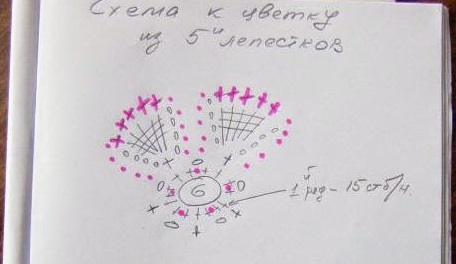 Схема к цветку
из 5и лепестков
6
1й ряд - 15 стб/н.